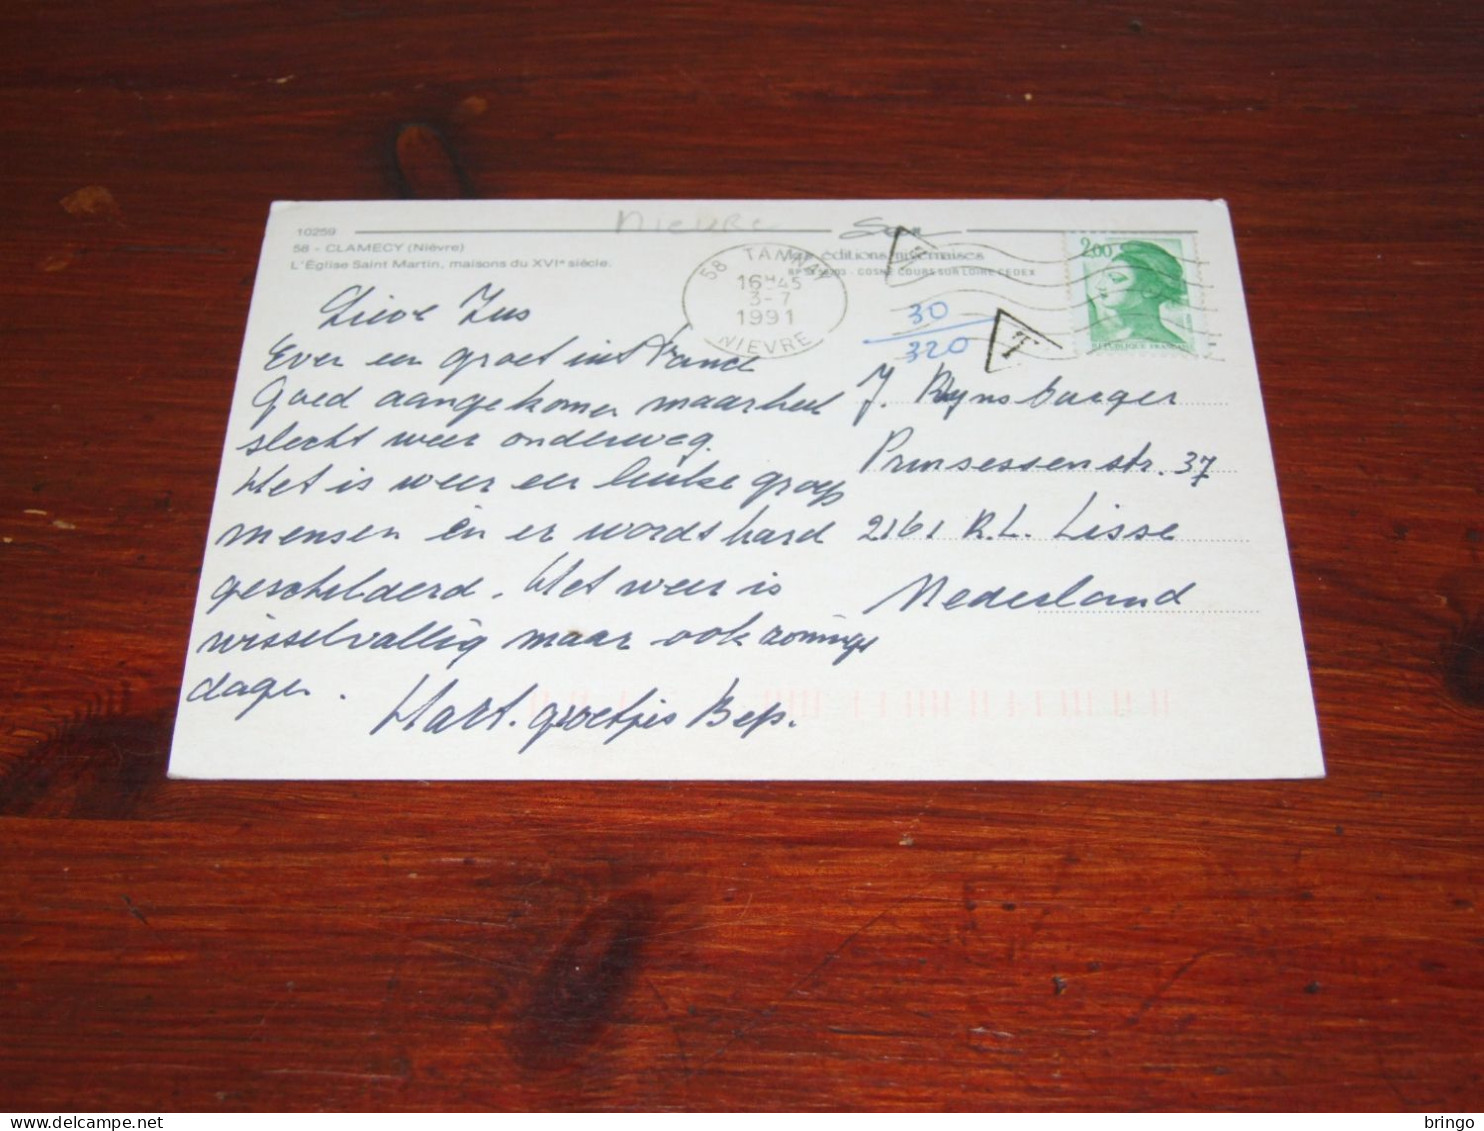 10259
58 - CLAMECY (Nièvre)
L'Église Saint Martin, maisons du XVIe siècle.
NIEVRE
éditions nivernaises
COSNE COURS SUR LOIRE CEDEX
58 TANNAY
16H45
3-7
1991
NIEVRE
30
320
T
2,00
REPUBLIQUE FRANÇAISE
Lieve Zus
Even een groet uit Franc
Goed aangekomen maar heel
slecht weer onderweg.
Het is weer een leuke groep
mensen en er wordt hard
geschilderd. Het weer is
wisselvallig maar ook zonnige
dagen.
Hart. groetjes Bep.
J. Rynsburger
Prinsessenstr. 37
2161 R.L. Lisse
Nederland
delcampe.net
bringo